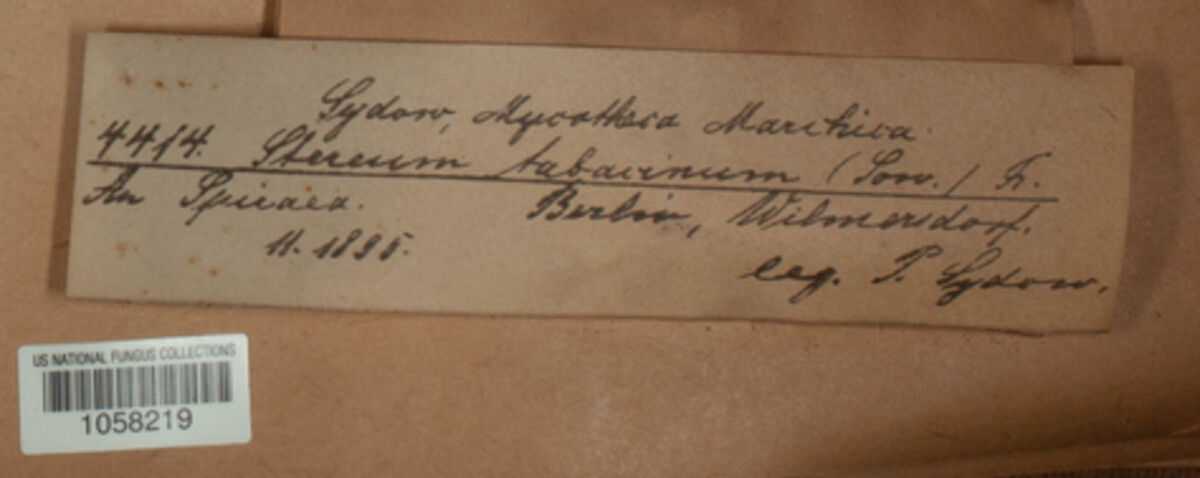 Sydow, Mycotheca Marchica.
4414. Stereum tabacinum (Sow.) Fr.
An Spiraea. Berlin, Wilmersdorf.
11. 1895. leg. P. Sydow.
US NATIONAL FUNGUS COLLECTIONS
1058219